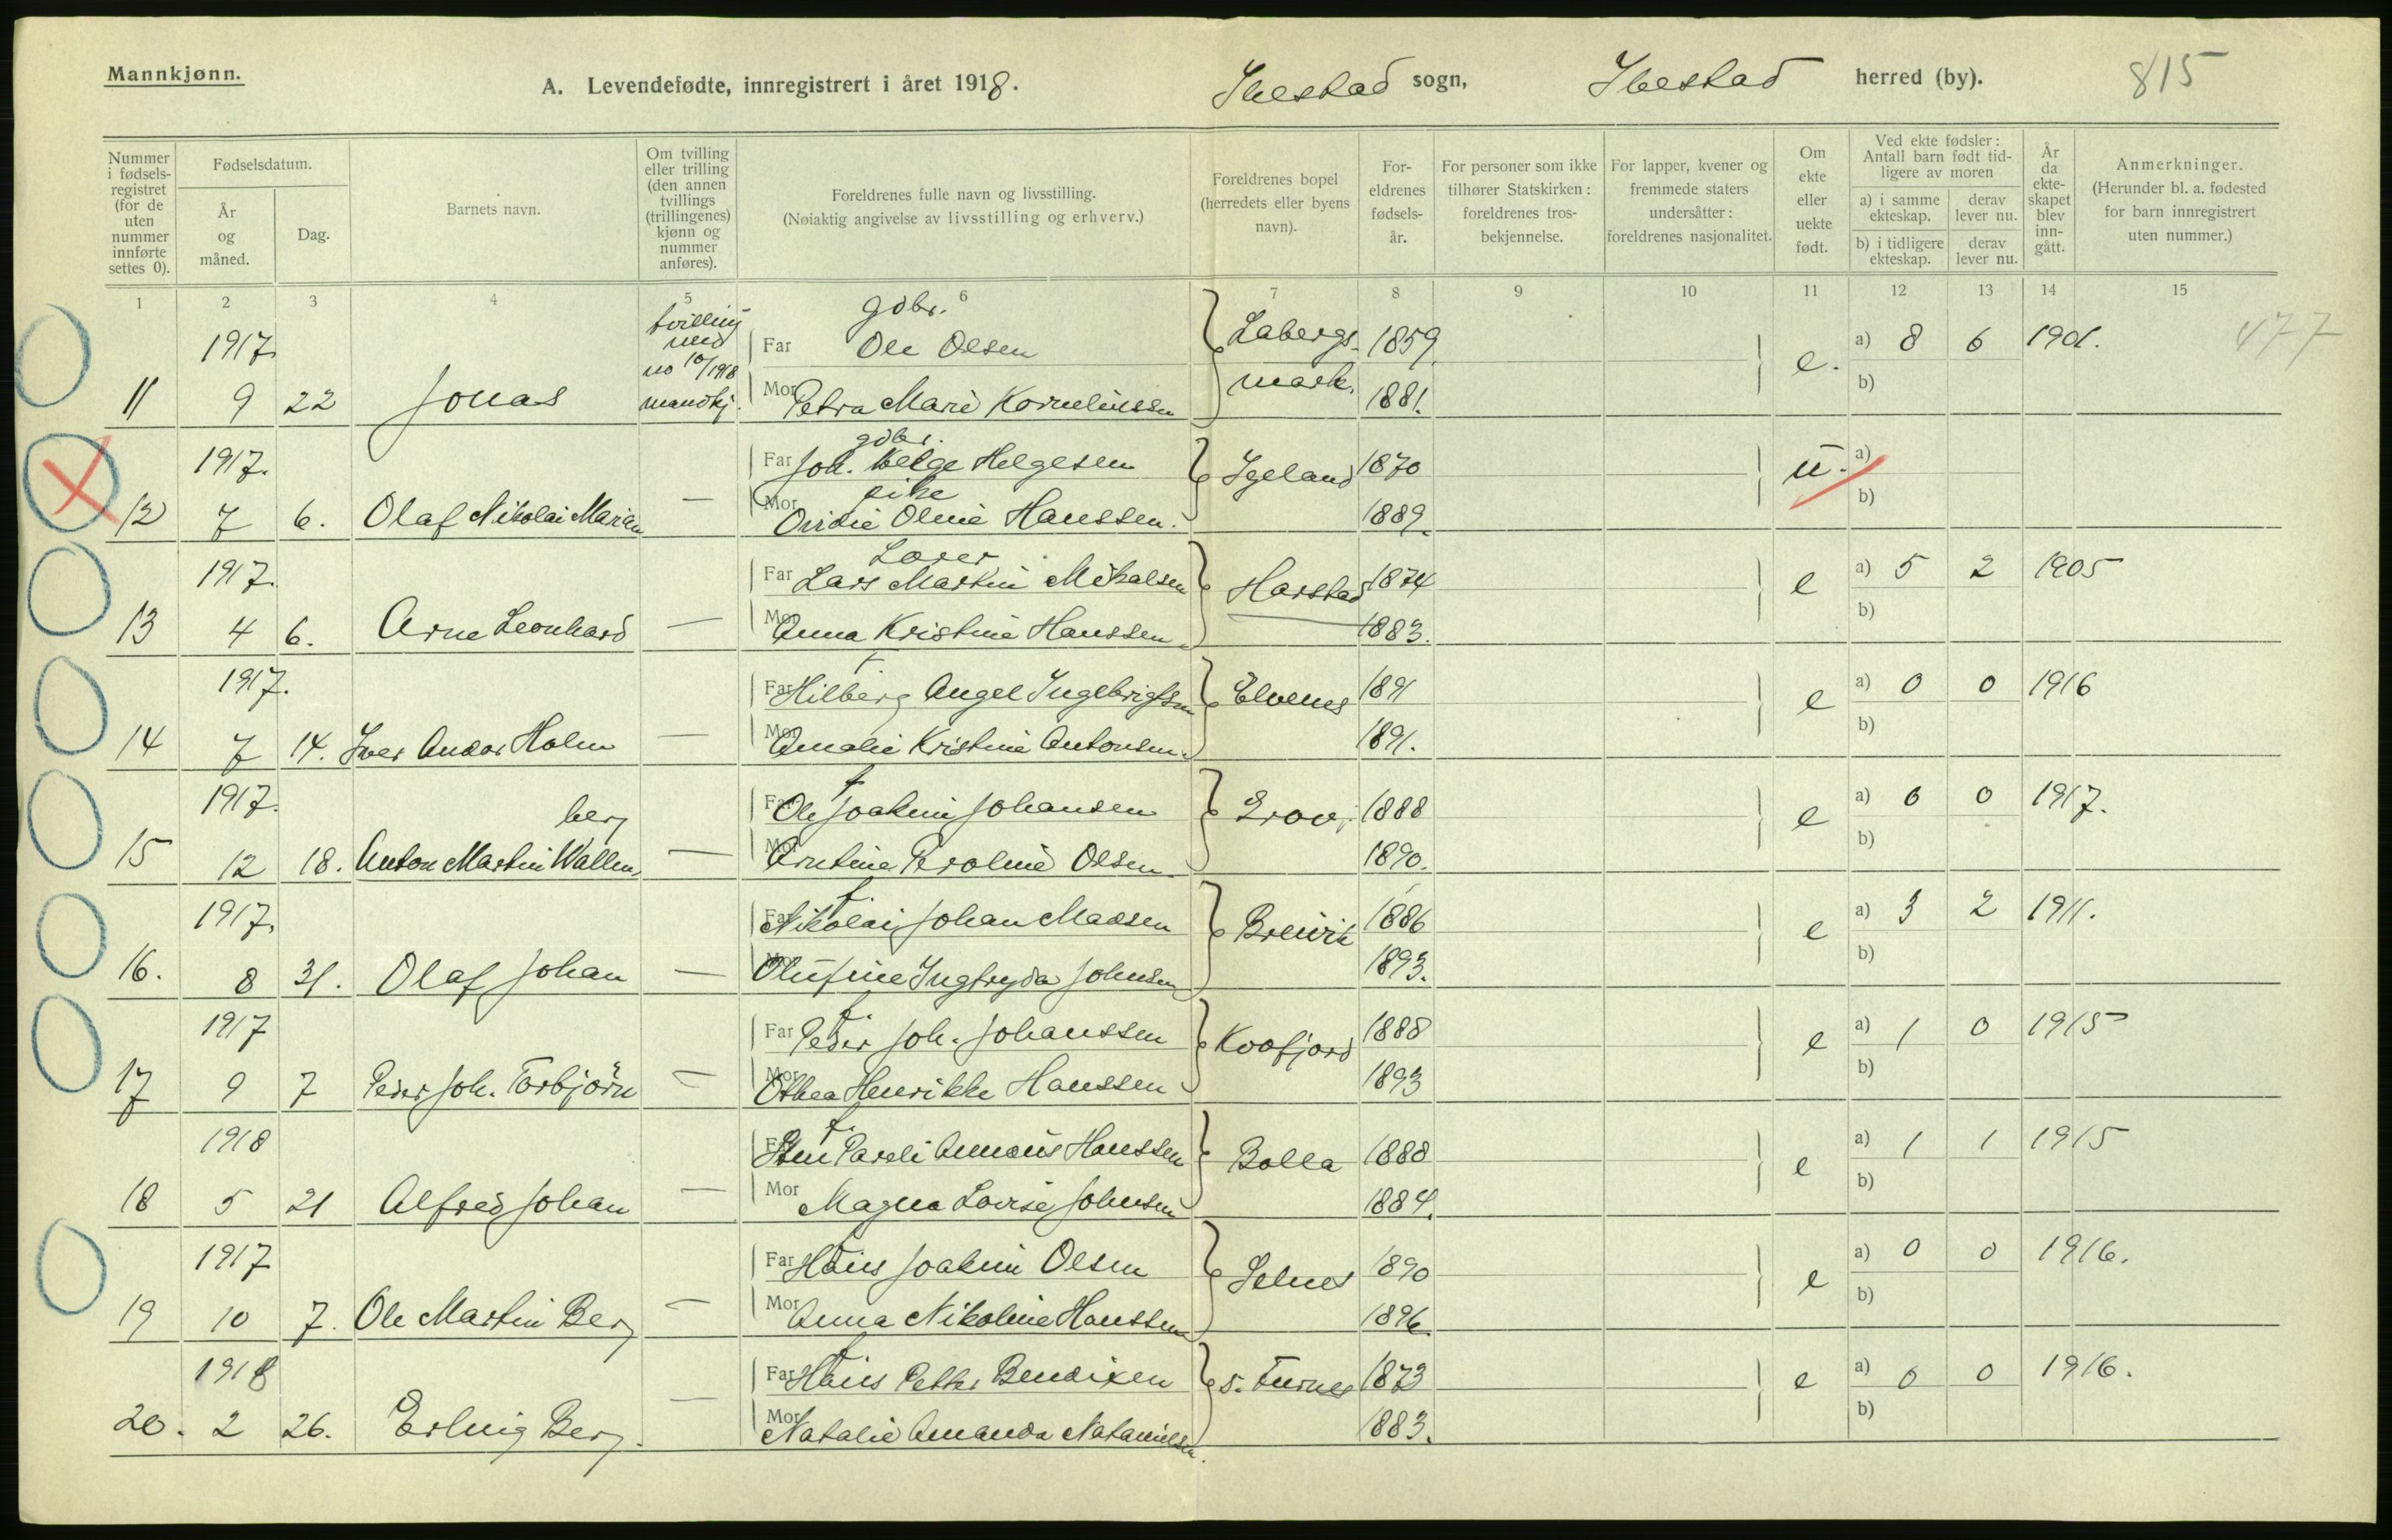 Mannkjønn.
A. Levendefødte, innregistrert i året 1918.
Ibestad sogn, Ibestad herred (by). 815
Nummer i fødsels-registret (for de uten nummer innførte settes 0).
Fødselsdatum.
År og måned.
Dag.
Barnets navn.
Om tvilling eller trilling (den annen tvillings (trillingenes) kjønn og nummer anføres).
Foreldrenes fulle navn og livsstilling.
(Nøiaktig angivelse av livsstilling og erhverv.)
Foreldrenes bopel (herredets eller byens navn).
For-eldrenes fødsels-år.
For personer som ikke tilhører Statskirken: foreldrenes tros-bekjennelse.
For lapper, kvener og fremmede staters undersåtter: foreldrenes nasjonalitet.
Om ekte eller uekte født.
Ved ekte fødsler: Antall barn født tid-ligere av moren
a) i samme ekteskap. derav lever nu.
b) i tidligere ekteskap. derav lever nu.
År da ekte-skapet blev inn-gått.
Anmerkninger.
(Herunder bl. a. fødested for barn innregistrert uten nummer.)
1 2 3 4 5 6 7 8 9 10 11 12 13 14 15
tvilling med no 10/1918 mandkj.
gdbr.
1917. Far Ole Olsen Labergs- 1859. e. a) 8 6 1901. 477
11 9 22 Jonas Mor Petra Marie Korneliussen mark. 1881. b)
gdbr.
1917. Far Joh. Helge Helgesen Igeland 1870 u. a)
pike
12 7 6. Olaf Nikolai Marian — Mor Ovidie Oline Hanssen. 1889. b)
Lærer
1917. Far Lars Martin Mikalsen Harstad 1874 e a) 5 2 1905
13 4 6. Arne Leonhard — Mor Anna Kristine Hanssen 1883. b)
f.
1917. Far Hilberg Angel Ingebrigtsen Elvenes 1891 e a) 0 0 1916
14 7 14. Iver Andor Holm — Mor Amalie Kristine Antonsen. 1891. b)
f
1917. Far Ole Joakim Johansen Grov. 1888 e a) 0 0 1917.
berg
15 12 18. Anton Martin Wallen — Mor Arntine Peroline Olsen 1890. b)
f.
1917. Far Nikolai Johan Madsen Breivik 1886 e a) 3 2 1911.
16. 8 31. Olaf Johan — Mor Olufine Ingfryda Johnsen 1893. b)
f.
1917 Far Peder Joh. Johanssen Kvafjord 1888 e a) 1 0 1915
17 9 7 Peder Joh. Torbjörn — Mor Othea Henrikke Hanssen 1893 b)
f.
1918 Far Pareli Hanssen Bolla 1888 e a) 1 1 1915
18 5 21 Alfred Johan — Mor Magna Lovise Johnsen 1884. b)
f
1917 Far Hans Joakim Olsen Selnes 1890 e a) 0 0 1916.
19 10 7. Ole Martin Berg — Mor Anna Nikoline Hanssen 1896. b)
f
1918 Far Hans Petter Bendixen S. Furnes 1873 e a) 0 0 1916.
20. 2 26. Erling Berg. — Mor Natalie Amanda Natanielsen. 1883. b)